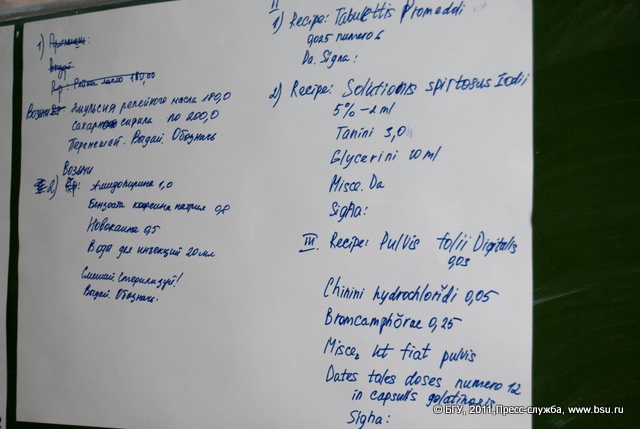 1) Пропиши:
Возьми
Rp.: Репей масло 180,00
Возьми: Эмульсия репейного масла 180,0
Сахарного сиропа по 200,0
Перемешай. Выдай. Обозначь
Возьми
2) Амидопирина 1,0
Бензоата кофеина натрия 0,8
Новокаина 0,5
Вода для инъекций 20 мл
Смешай. Стерилизуй!
Выдай. Обозначь.
II
1) Recipe: Tabulettis Promedoli
0,025 numero 6
Da. Signa:
2) Recipe: Solutionis spirtosus Iodii
5% – 2 ml
Tanini 3,0
Glycerini 10 ml
Misce. Da
Signa:
III. Recipe: Pulvis folii Digitalis
0,03
Chinini hydrochloridi 0,05
Bromcamphŏrae 0,25
Misce, ut fiat pulvis
Dates tales doses numero 12
in capsulis golatinosis
Signa:
© БГУ, 2011,Пресс-служба, www.bsu.ru